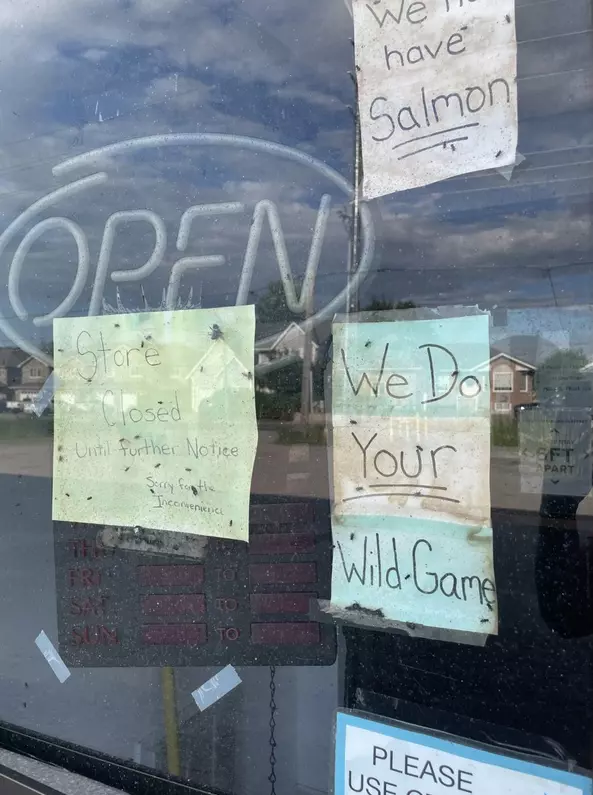 We
have
Salmon
OPEN
Store
Closed
Until further Notice
Sorry for the
Inconvenience
We Do
Your
Wild-Game
6FT
APART
FRI TO
SAT TO
SUN TO
PLEASE
USE